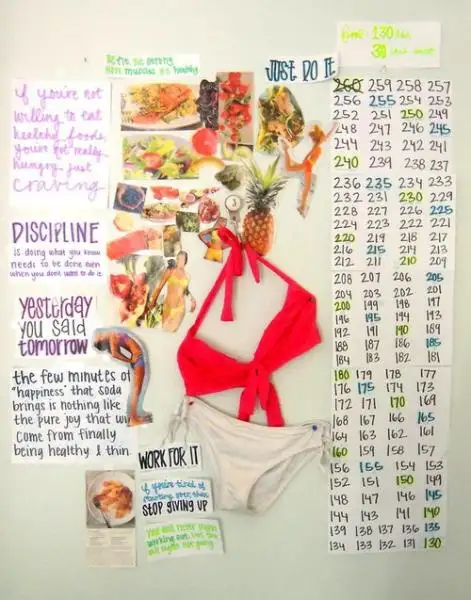 JUST DO IT
130 lbs
30
if you're not
willing to eat
healthy foods,
you're not really
hungry. just
craving
DISCIPLINE
is doing what you know
needs to be done even
when you don't want to do it.
yesterday
you said
tomorrow
the few minutes of
"happiness" that soda
brings is nothing like
the pure joy that wil
come from finally
being healthy I thin
WORK FOR IT
if you're tired of
starting over, then
STOP GIVING UP
you will never regret
working out, but you
not going.
260 259 258 257
256 255 254 253
252 251 250 249
248 247 246 245
244 243 242 241
240 239 238 237
236 235 234 233
232 231 230 229
228 227 226 225
224 223 222 221
220 219 218 217
216 215 214 213
212 211 210 209
208 207 206 205
204 203 202 201
200 199 198 197
196 195 194 193
192 191 190 189
188 187 186 185
184 183 182 181
180 179 178 177
176 175 174 173
172 171 170 169
168 167 166 165
164 163 162 161
160 159 158 157
156 155 154 153
152 151 150 149
148 147 146 145
144 143 141 140
139 138 137 136 135
134 133 132 131 130